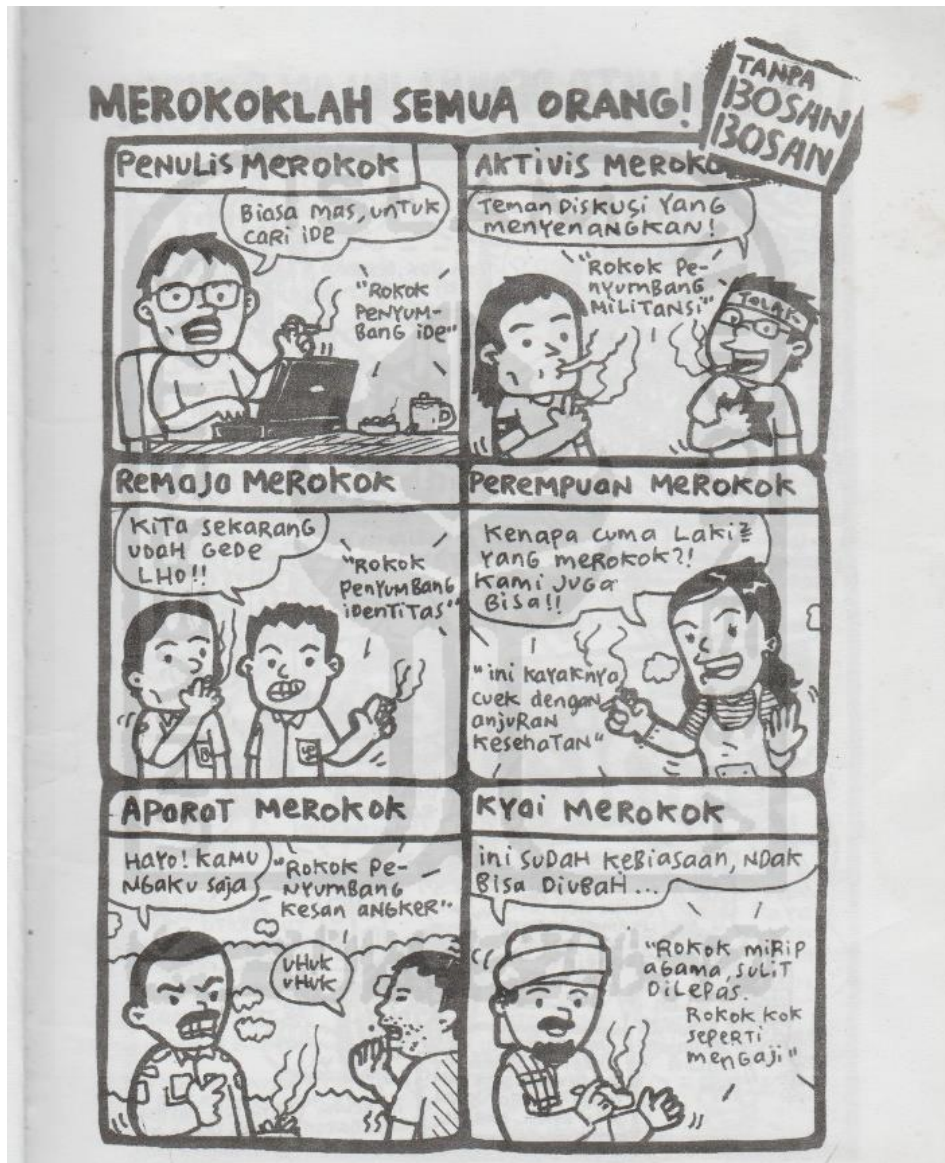 MEROKOKLAH SEMUA ORANG!
TANPA
BOSAN
BOSAN
PENULIS MEROKOK
Biasa mas, untuk
cari ide
"Rokok
penyum-
bang ide"
AKTIVIS MEROKO
Teman diskusi yang
menyenangkan!
"Rokok pe-
nyumbang
militansi"
TOLAK
REMAJA MEROKOK
Kita sekarang
udah gede
lho!!
"Rokok
penyumbang
identitas"
PEREMPUAN MEROKOK
Kenapa cuma laki2
yang merokok?!
Kami juga
bisa!!
"ini kayaknya
cuek dengan
anjuran
kesehatan"
APARAT MEROKOK
Hayo! kamu
ngaku saja
"Rokok pe-
nyumbang
kesan angker"
uhuk
uhuk
KYAI MEROKOK
ini sudah kebiasaan, ndak
bisa diubah...
"Rokok mirip
agama, sulit
dilepas.
Rokok kok
seperti
mengaji"